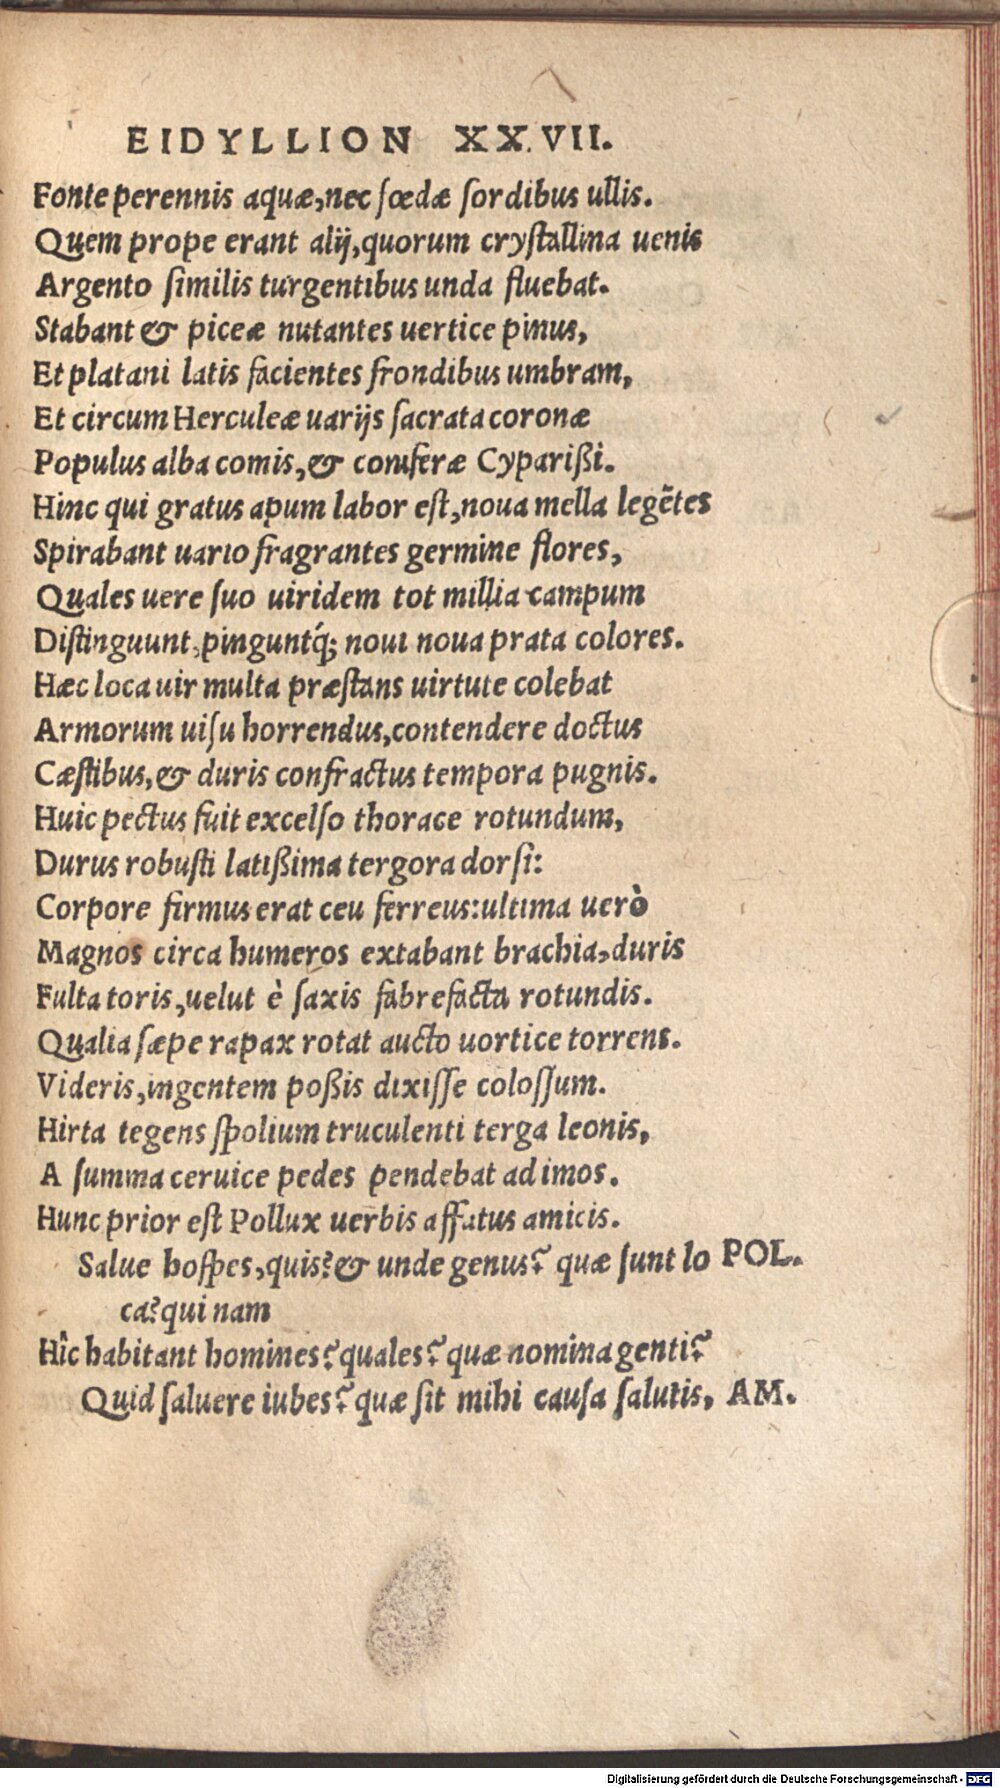 EIDYLLION XXVII.
Fonte perennis aquæ, nec fœdæ sordibus ullis.
Quem prope erant alij, quorum crystallina uenis
Argento similis turgentibus unda fluebat.
Stabant & piceæ nutantes uertice pinus,
Et platani latis facientes frondibus umbram,
Et circum Herculeæ uarijs sacrata coronæ
Populus alba comis, & coniferæ Cyparißi.
Hinc qui gratus apum labor est, noua mella legẽtes
Spirabant uario fragrantes germine flores,
Quales uere suo uiridem tot millia campum
Distinguunt, pinguntq́; noui noua prata colores.
Hæc loca uir multa præstans uirtute colebat
Armorum uisu horrendus, contendere doctus
Cæstibus, & duris confractus tempora pugnis.
Huic pectus fuit excelso thorace rotundum,
Durus robusti latißima tergora dorsi:
Corpore firmus erat ceu ferreus: ultima uerò
Magnos circa humeros extabant brachia, duris
Fulta toris, uelut è saxis fabrefacta rotundis.
Qualia sæpe rapax rotat aucto uortice torrens.
Videris, ingentem poßis dixisse colossum.
Hirta tegens spolium truculenti terga leonis,
A summa ceruice pedes pendebat ad imos.
Hunc prior est Pollux uerbis affatus amicis.
Salue hospes, quis? & unde genus? quæ sunt lo POL.
ca? qui nam
Hîc habitant homines? quales? quæ nomina genti?
Quid saluere iubes? quæ sit mihi causa salutis, AM.
Digitalisierung gefördert durch die Deutsche Forschungsgemeinschaft - DFG